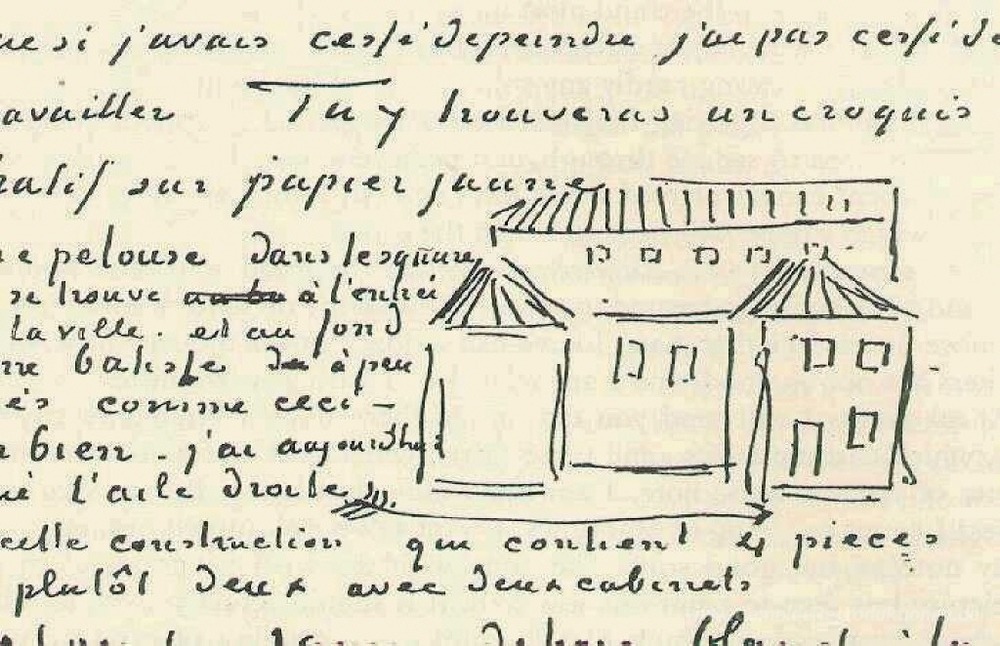 ue si j'avais cessé de peindre j'ai pas cessé de
availler Tu y trouveras un croquis
ratif sur papier jaune
e pelouse dans le square
se trouve à l'entrée
la ville. et au fond
ne batisse à peu
es comme ceci -
bien - j'ai aujourdhui
é l'aile droite
celle construction qui contient 4 pièces
plutôt deux avec deux cabinets